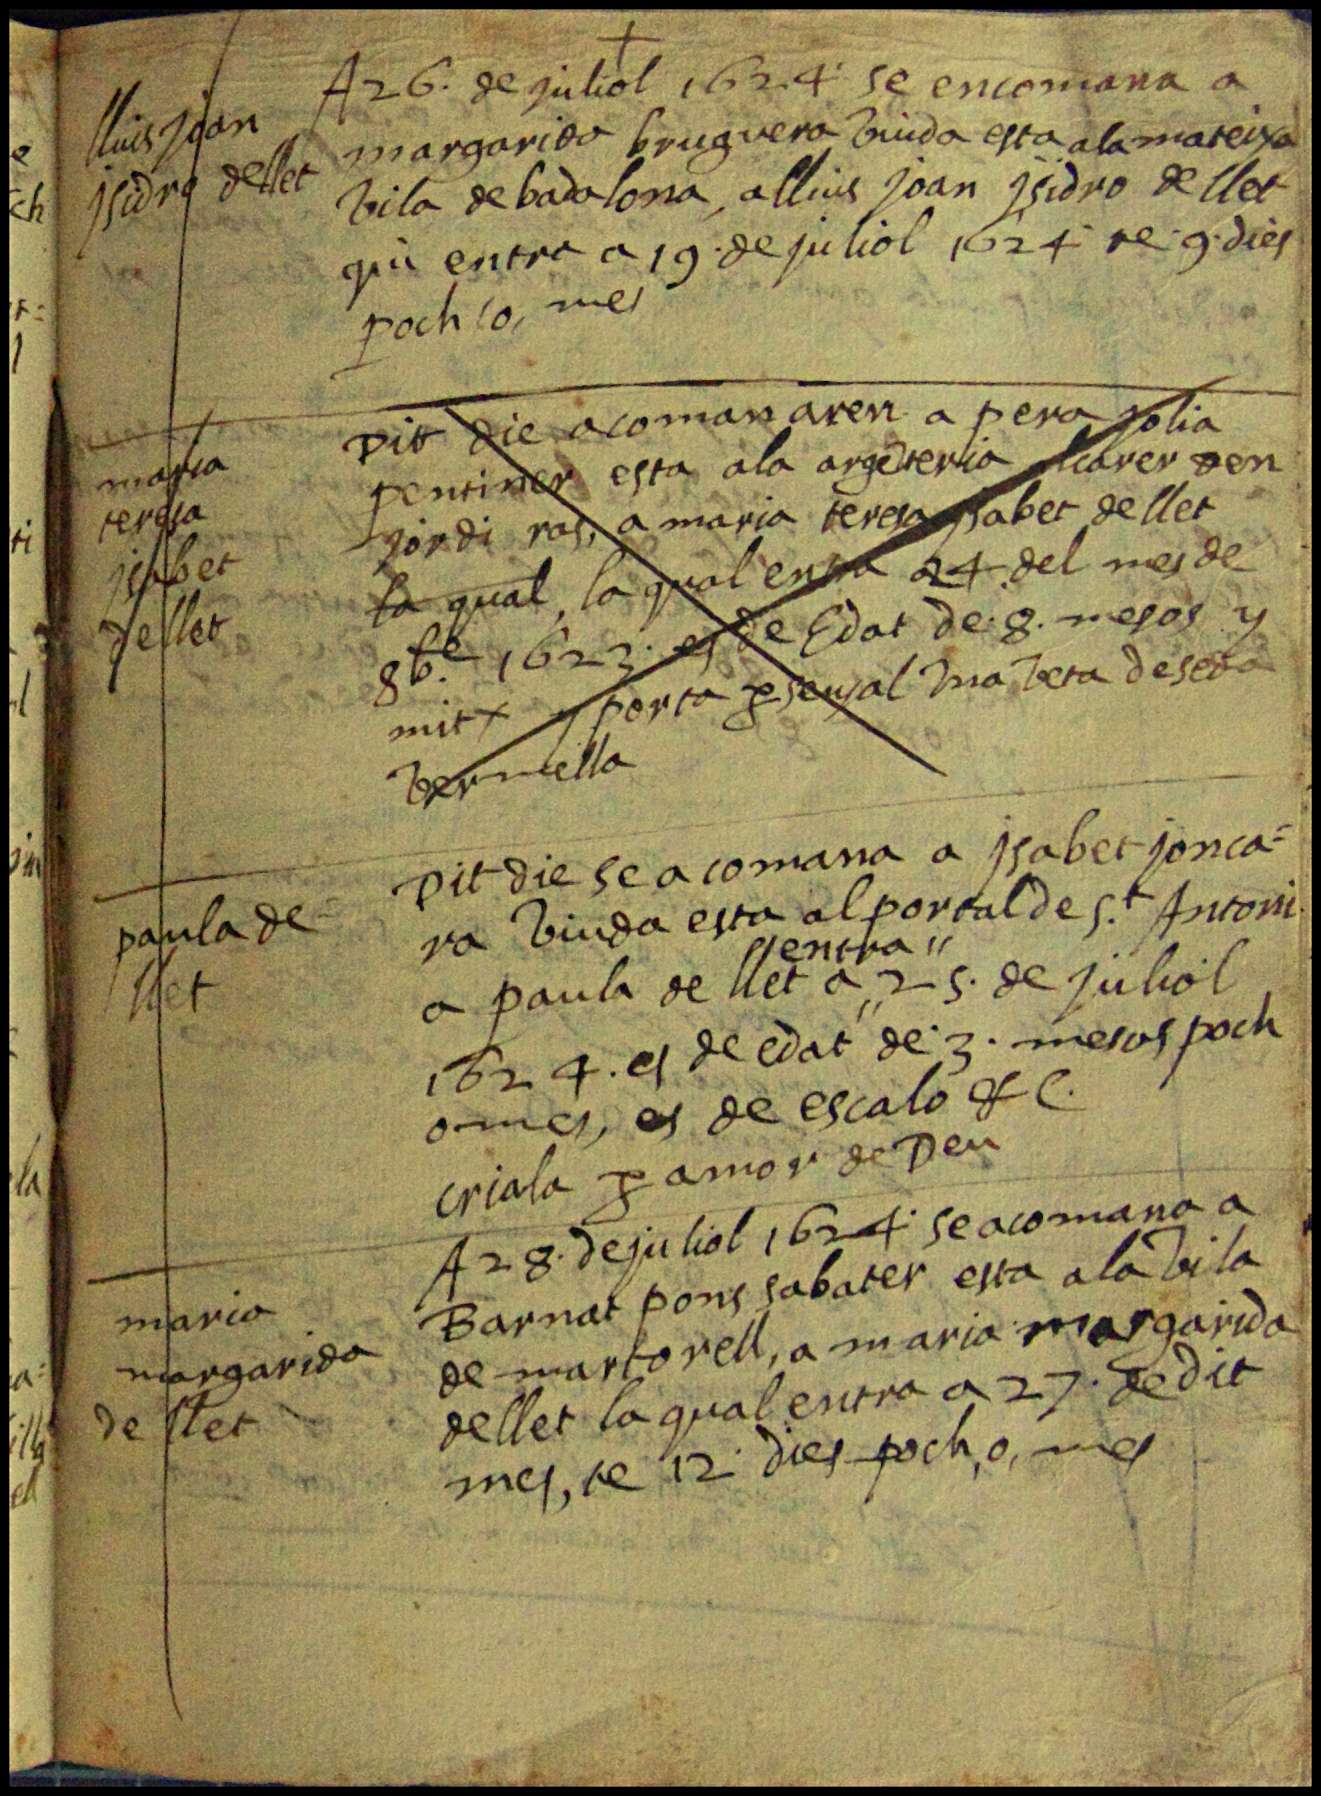 lluis joan
jsidro dellet
A 26. de juliol 1624 se encomana a
margarida bruguera viuda esta ala mateixa
vila de badalona, a lluis joan jsidro de llet
qui entra a 19. de juliol 1624 te 9. dies
poch, o, mes
maria
teresa
jsabet
de llet
Dit die acomanaren a pera jolia
pentiner esta ala argenteria al carer den
jordi ras, a maria teresa jsabet de llet
la qual, la qual entra a 24 del mes de
8b.e 1623. es de Edat de. 8. mesos y
mitx y porta p senyal vna veta de seda
vermella
paula de=
llet
Dit die se acomana a jsabet jonca=
ra viuda esta al portal de S.t Antoni.
a paula de llet "entra" a 25. de juliol
1624. es de edat de. 3. mesos poch
o mes, es de escalo &c.
criala p amor de Deu
maria
margarida
de llet
A 28. de juliol 1624 se acomana a
Barnat pons sabater esta a la vila
de martorell, a maria margarida
de llet la qual entra a 27. de dit
mes, te 12 dies poch, o, mes